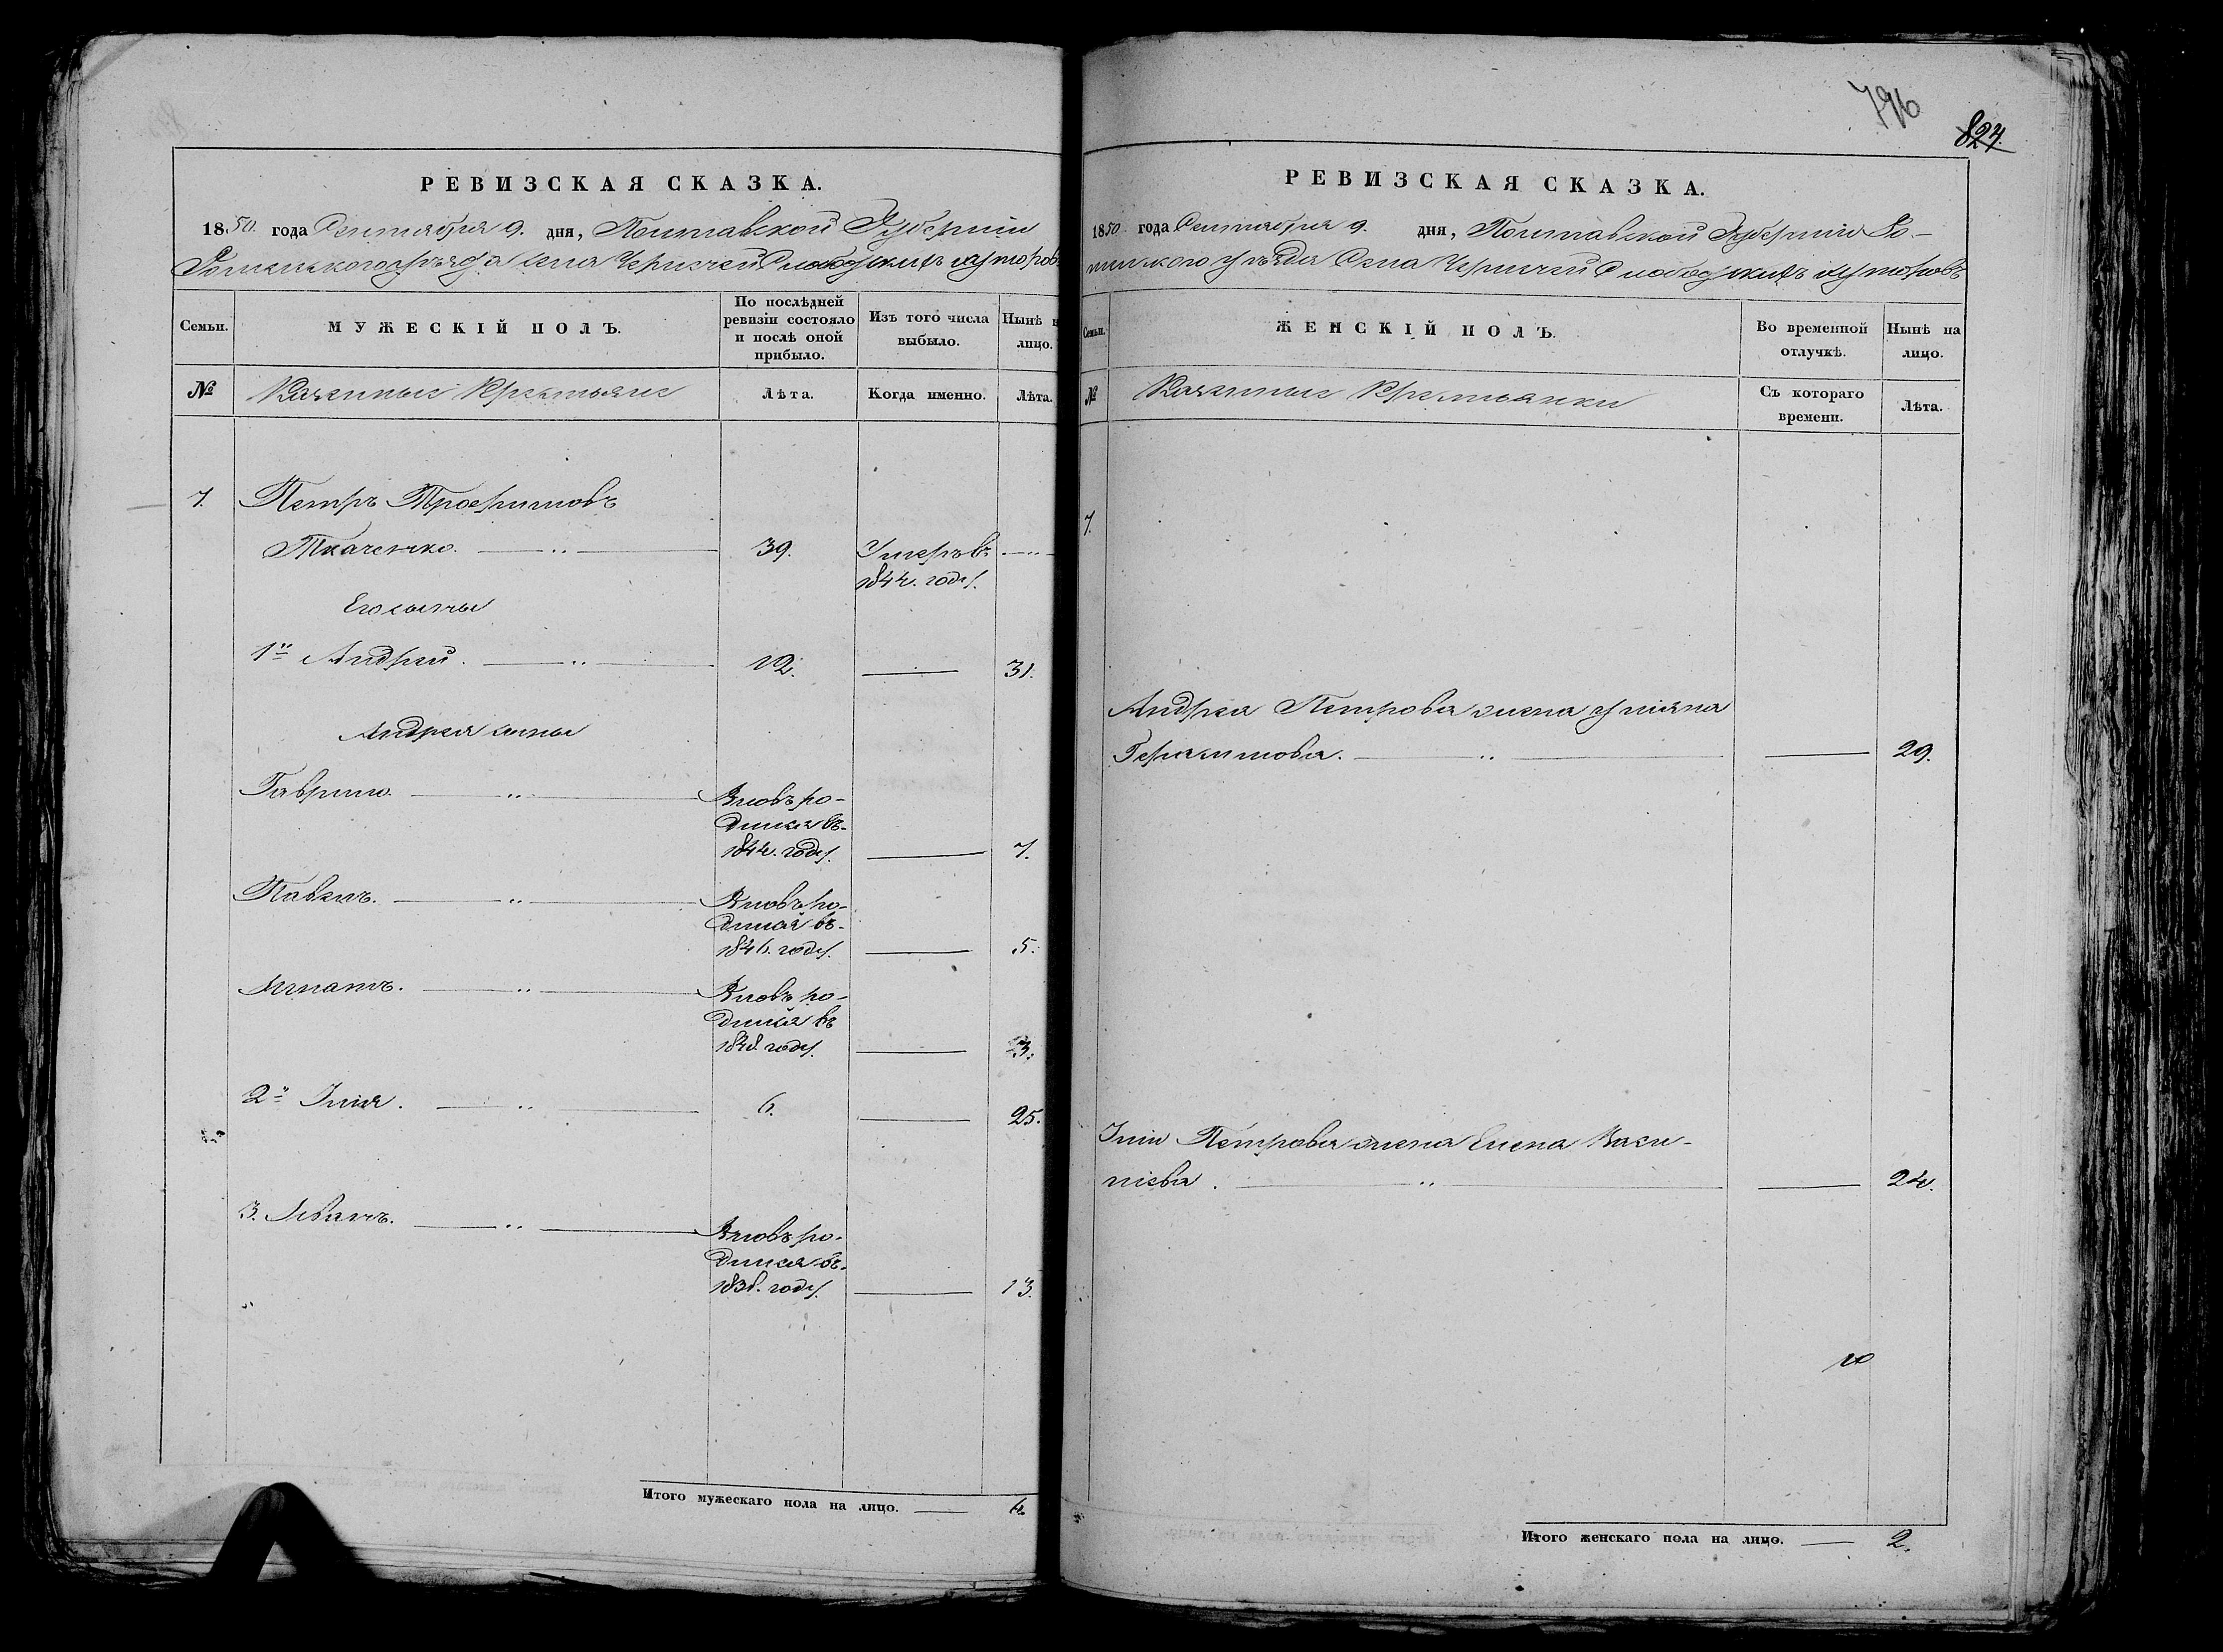 796
824.
РЕВИЗСКАЯ СКАЗКА.
1850. года Сентября 9. дня, Полтавской Губерніи
Роменского уѣзда села Чернечей Слободскихъ хуторовъ
Семьи.
МУЖЕСКІЙ ПОЛЪ.
По послѣдней
ревизіи состояло
и послѣ оной
прибыло.
Изъ того числа
выбыло.
Нынѣ н
лицо.
№
Казенные Крестьяне
Лѣта.
Когда именно.
Лѣта.
7. Петръ Трофимовъ
Ткаченко. 39. Умеръ въ
1844. году.
Его сыны
1й Андрей. 12. 31.
Андрея сыны
Гаврило. Вновь ро-
дился въ
1844. году. 7.
Павелъ. Вновь ро-
дился въ
1846. году. 5.
Игнатъ. Вновь ро-
дился въ
1848 году. 3.
2й Илія. 6. 25.
3. Иванъ. Вновь ро-
дился въ
1838. году. 13.
Итого мужескаго пола на лицо. 6.
РЕВИЗСКАЯ СКАЗКА.
1850. года Сентября 9. дня, Полтавской Губерніи Ро-
менского уѣзда Села Чернечей Слободскихъ хуторовъ
Семьи.
ЖЕНСКІЙ ПОЛЪ.
Во временной
отлучкѣ.
Нынѣ на
лицо.
№
Казенные Крестьянки
Съ котораго
времени.
Лѣта.
7.
Андрея Петрова жена Уліяна
Герасимова. 29.
Иліи Петрова жена Елена Васи-
ліева. 24.
Итого женскаго пола на лицо. 2.